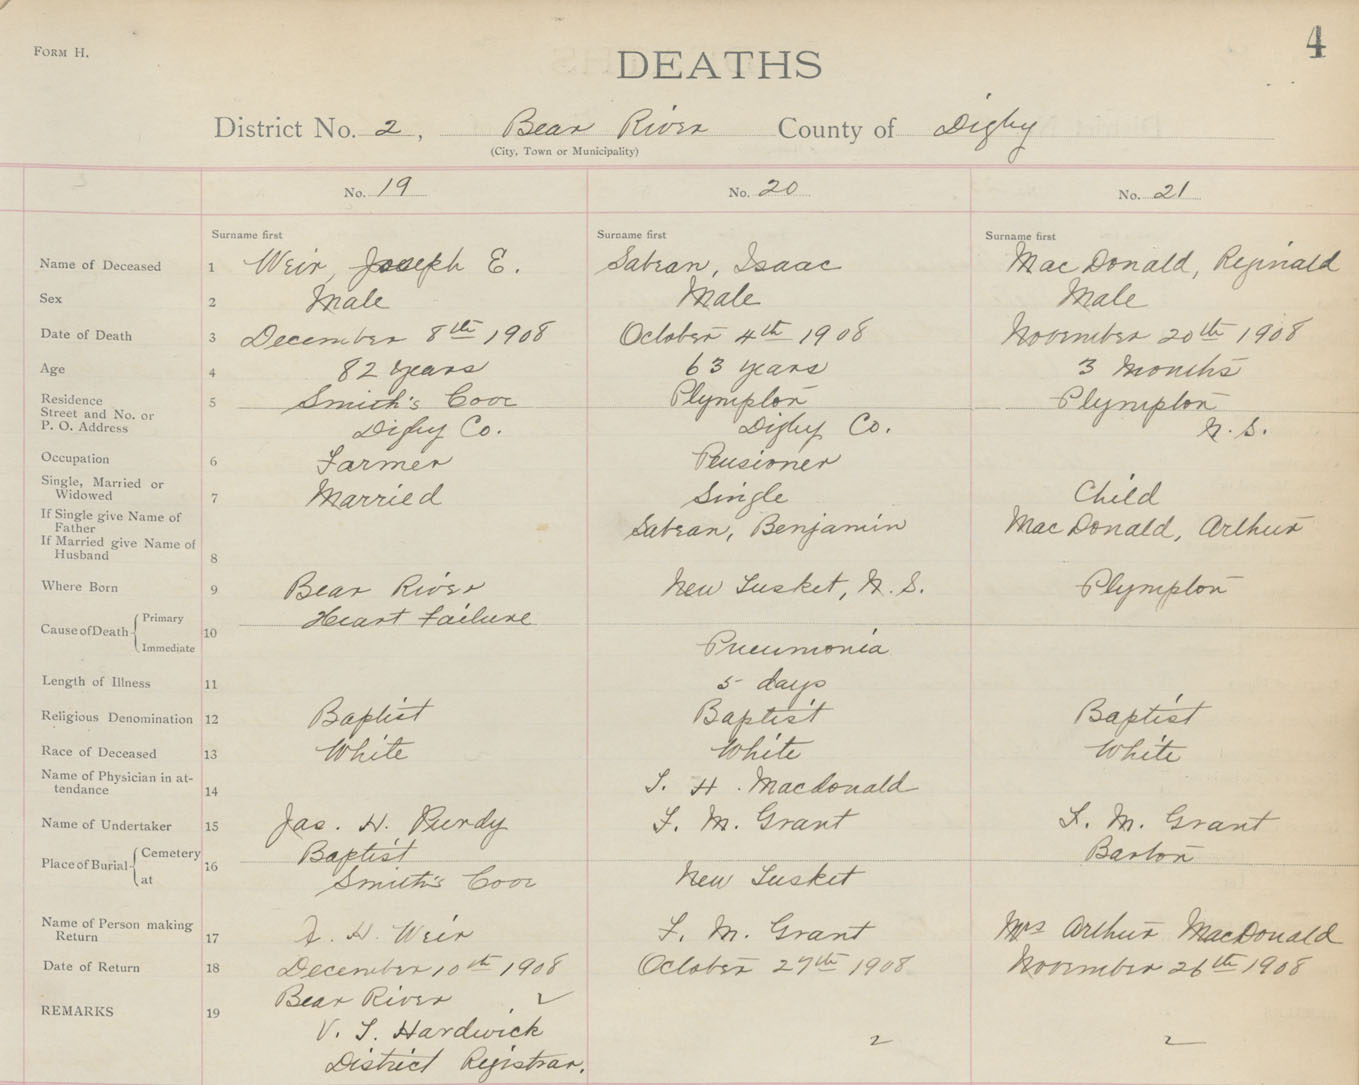 FORM H.
4
DEATHS
District No. 2, Bear River County of Digby
(City, Town or Municipality)
No. 19 No. 20 No. 21
Surname first Surname first Surname first
Name of Deceased 1 Weir, Joseph E. Sabean, Isaac MacDonald, Reginald
Sex 2 Male Male Male
Date of Death 3 December 8th 1908 October 4th 1908 November 20th 1908
Age 4 82 years 63 years 3 Months
Residence 5 Smith's Cove Plympton Plympton
Street and No. or
P. O. Address Digby Co. Digby Co. N. S.
Occupation 6 Farmer Pensioner
Single, Married or
Widowed 7 Married Single Child
If Single give Name of
Father Sabean, Benjamin MacDonald, Arthur
If Married give Name of
Husband 8
Where Born 9 Bear River New Tusket, N. S. Plympton
Cause of Death Primary 10 Heart Failure
Immediate Pneumonia
Length of Illness 11 5 days
Religious Denomination 12 Baptist Baptist Baptist
Race of Deceased 13 White White White
Name of Physician in at-
tendance 14 H. Macdonald
Name of Undertaker 15 Jas. H. Purdy F. M. Grant F. M. Grant
Place of Burial Cemetery 16 Baptist Barton
at Smith's Cove New Tusket
Name of Person making
Return 17 H. Weir F. M. Grant Mrs Arthur MacDonald
Date of Return 18 December 10th 1908 October 27th 1908 November 26th 1908
REMARKS 19 Bear River 2
V. T. Hardwick 2 2
District Registrar.